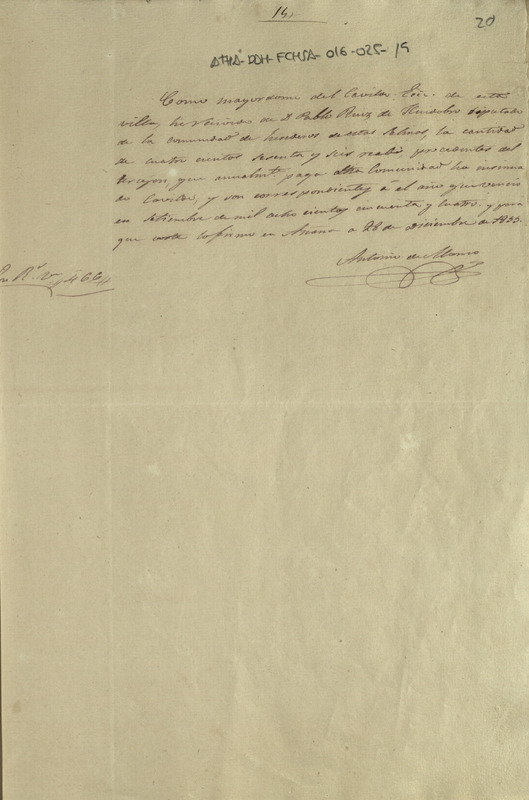 19.
20
ATHA-DAH-FCHSA-016-025-19
Como mayordomo del Cavildo Ecc. de esta
villa, he recivido de D. Pablo Ruiz de Huidobro diputado
de la comunidad de herederos de estas Salinas, la cantidad
de cuatro cientos sesenta y seis reales procedentes del
que anualmte. paga dha Comunidad ha
do Cavildo, y son correspondientes a el año que vencio
en Setiembre de mil ocho cientos cincuenta y cuatro. y para
que conste lo firmo en Anana a 28 de Diciembre de 1855.
Antonio de
Son Rs. vn. 466